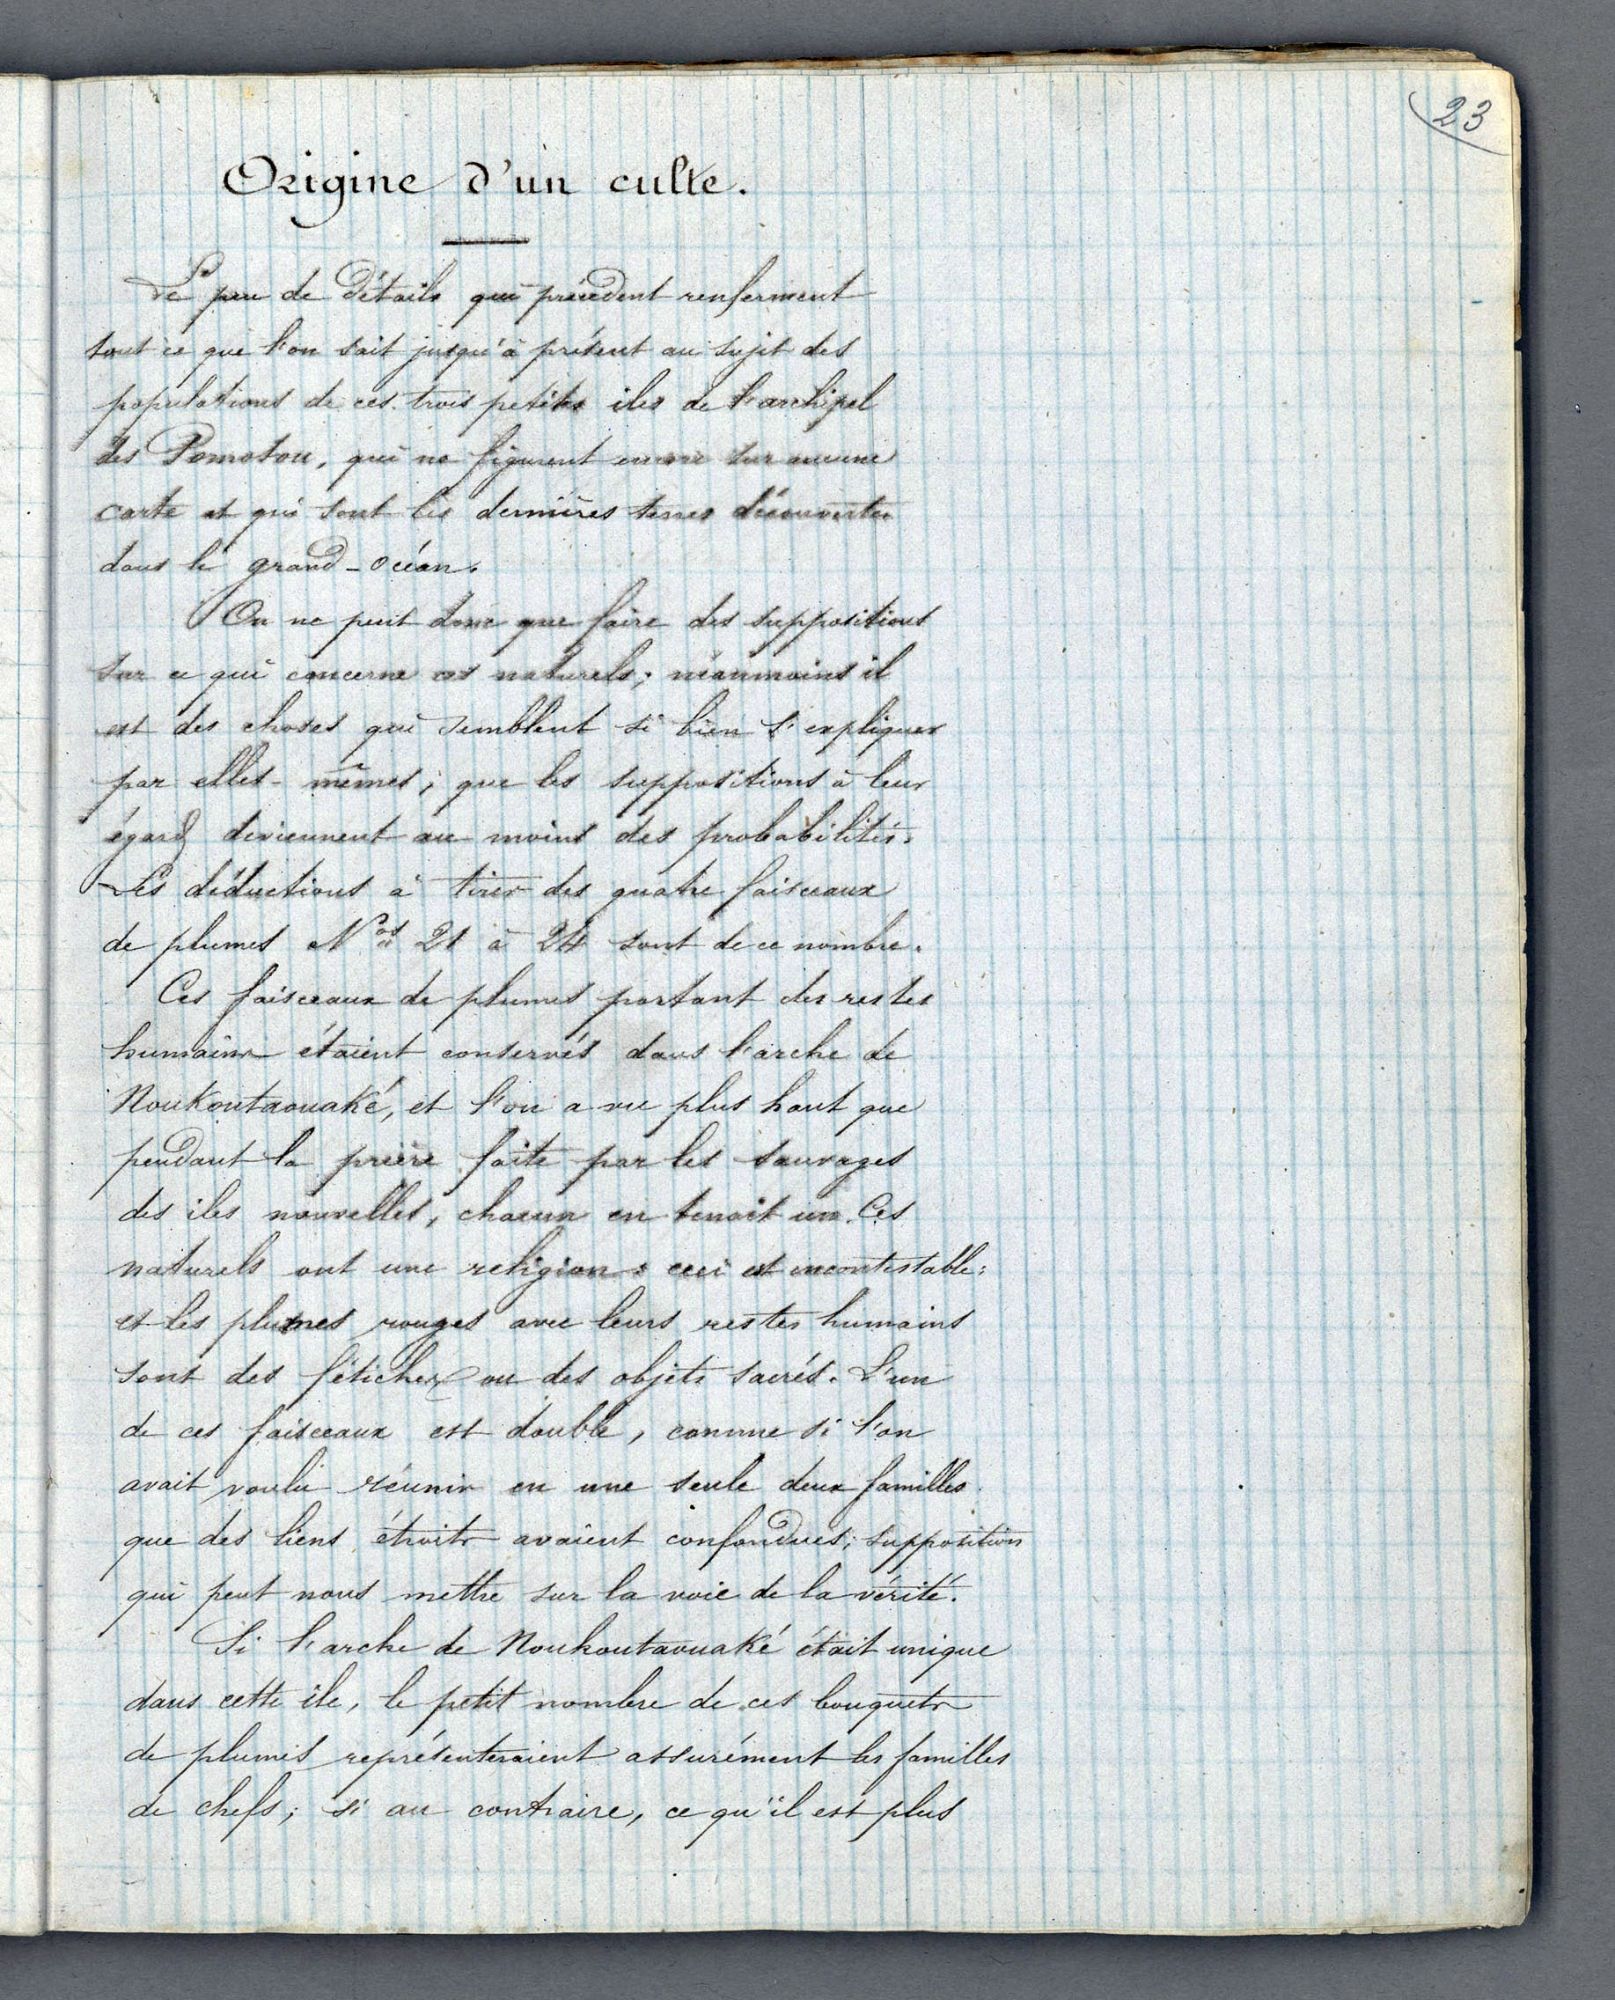 23
Origine d'un culte.
Le peu de détails qui précèdent renferment
tout ce que l'on sait jusqu'à présent au sujet des
populations de ces trois petites iles de l'archipel
des Pomotou, qui ne figurent encore sur aucune
carte et qui sont les dernières terres découvertes
dans le grand-océan.
On ne peut donc que faire des suppositions
sur ce qui concerne ces naturels; néanmoins il
est des choses qui semblent si bien s'expliquer
par elles-mêmes, que les suppositions à leur
égard deviennent au moins des probabilités.
Les déductions à tirer des quatre faisceaux
de plumes Nos 21 à 24 sont de ce nombre.
Ces faisceaux de plumes portant des restes
humains étaient conservés dans l'arche de
Noukoutaouaké, et l'on a vu plus haut que
pendant la prière faite par les sauvages
des iles nouvelles, chacun en tenait un. Ces
naturels ont une religion: ceci est incontestable:
et les plumes rouges avec leurs restes humains
sont des fétiches ou des objets sacrés. L'un
de ces faisceaux est double, comme si l'on
avait voulu réunir en une seule deux familles
que des liens étroits avaient confondues; supposition
qui peut nous mettre sur la voie de la vérité.
Si l'arche de Noukoutavuaké était unique
dans cette ile, le petit nombre de ces bouquets
de plumes représenteraient assurément les familles
de chefs; si au contraire, ce qu'il est plus